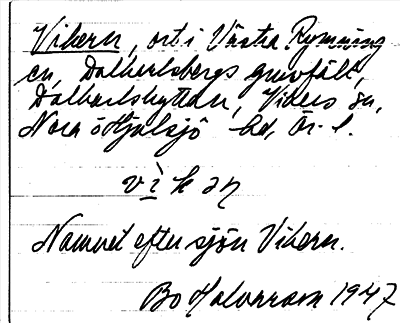 Vikern, ort i Västra Rymning
en, Dalkarlsbergs gruvfält,
Dalkarlshyttan, Vikers sn,
Nora o Hjulsjö hd, Ör. l.
vìkəɳ
Namnet efter sjön Vikern.
Bo Halvarsson 1947